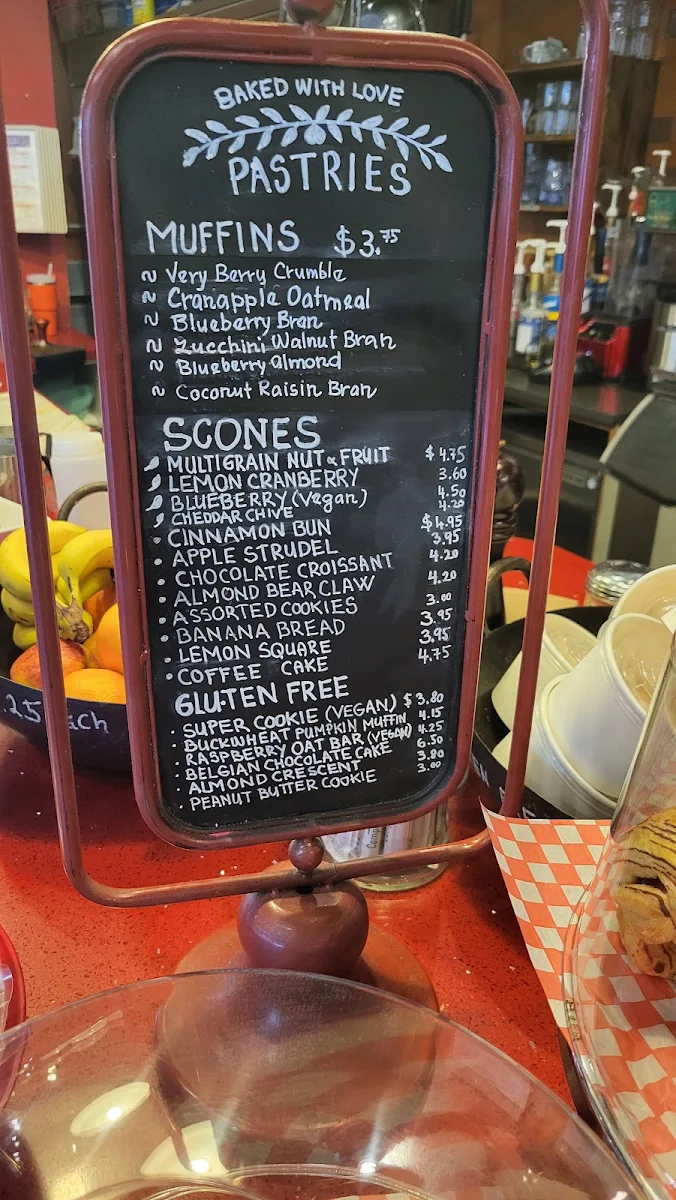 BAKED WITH LOVE
PASTRIES
MUFFINS $3.75
~ Very Berry Crumble
~ Cranapple Oatmeal
~ Blueberry Bran
~ Zucchini Walnut Bran
~ Blueberry almond
~ Coconut Raisin Bran
SCONES
MULTIGRAIN NUT & FRUIT $4.75
LEMON CRANBERRY 3.60
BLUEBERRY (Vegan) 4.50
CHEDDAR CHIVE 4.20
• CINNAMON BUN $4.95
• APPLE STRUDEL 3.95
• CHOCOLATE CROISSANT 4.20
• ALMOND BEAR CLAW 4.20
• ASSORTED COOKIES 3.00
• BANANA BREAD 3.95
• LEMON SQUARE 3.95
• COFFEE CAKE 4.75
GLUTEN FREE
• SUPER COOKIE (VEGAN) $3.80
• BUCKWHEAT PUMPKIN MUFFIN 4.15
• RASPBERRY OAT BAR (VEGAN) 4.25
• BELGIAN CHOCOLATE CAKE 6.50
• ALMOND CRESCENT 3.80
• PEANUT BUTTER COOKIE 3.00
.25 ach